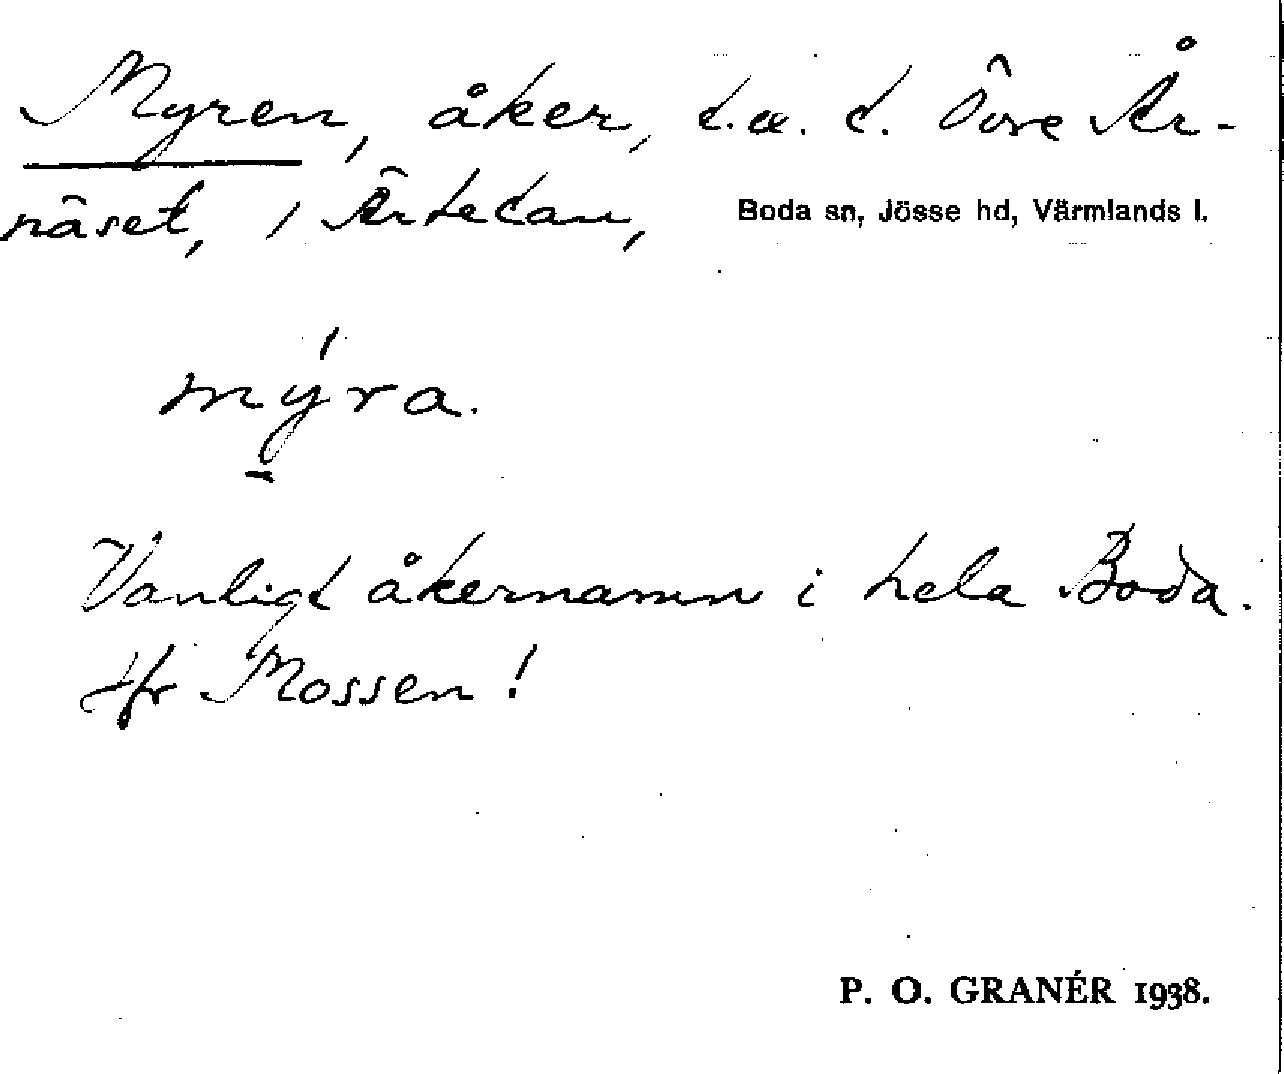 Myren, åker, t.æ. t. Övre År-
näset, i Ärtetan,
Boda sn, Jösse hd, Värmlands l.
mýra.
Vanligt åkernamn i hela Boda.
Jfr Mossen!
P. O. GRANÉR 1938.